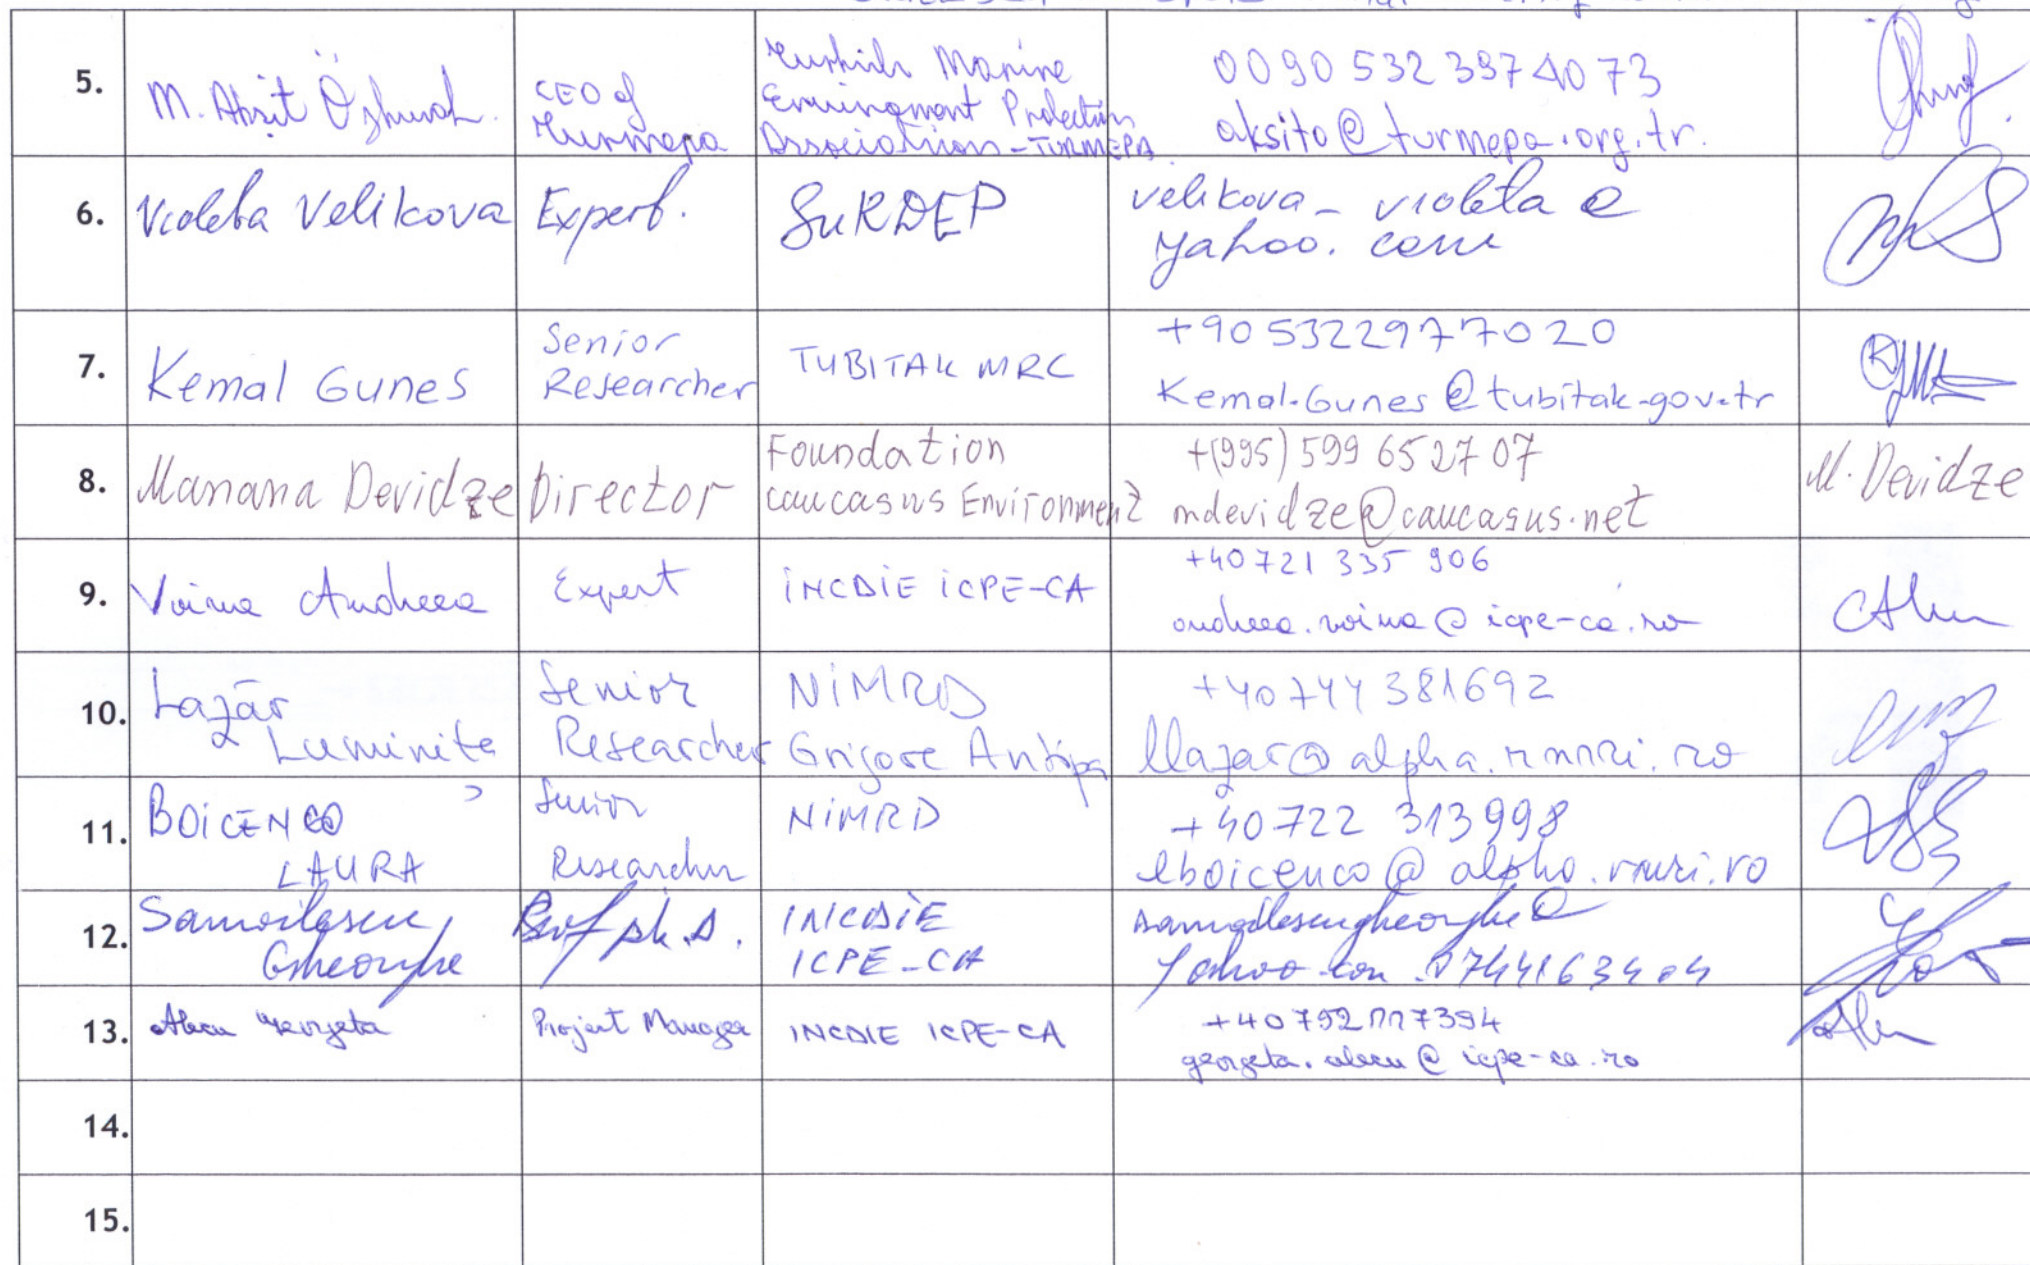 5. M. Aksit Özkural CEO of Turmepa Turkish Marine Environment Protection Association - TURMEPA 0090 532 397 40 73
aksito@turmepa.org.tr.
6. Violeta Velikova Expert. SuRDEP velikova_violeta@
yahoo.com
7. Kemal Gunes Senior Researcher TUBITAK MRC +90 5322977020
Kemal.Gunes@tubitak.gov.tr
8. Manana Devidze Director Foundation Caucasus Environment +(995) 599 65 27 07 M. Devidze
mdevidze@caucasus.net
9. Voina Andreea Expert INCDIE ICPE-CA +40 721 335 906
andreea.voina@icpe-ca.ro
10. Lazăr Luminita Senior Researcher NIMRD Grigore Antipa +40744 381692
llazar@alpha.rmri.ro
11. BOICENCO LAURA Senior Researcher NIMRD +40722 313998
lboicenco@alpha.rmri.ro
12. Samoilescu Gheorghe Prof ph.D. INCDIE ICPE-CA samoilescugheorghe@
yahoo.com 0744163404
13. Alecu Georgeta Project Manager INCDIE ICPE-CA
georgeta.alecu@icpe-ca.ro
14.
15.